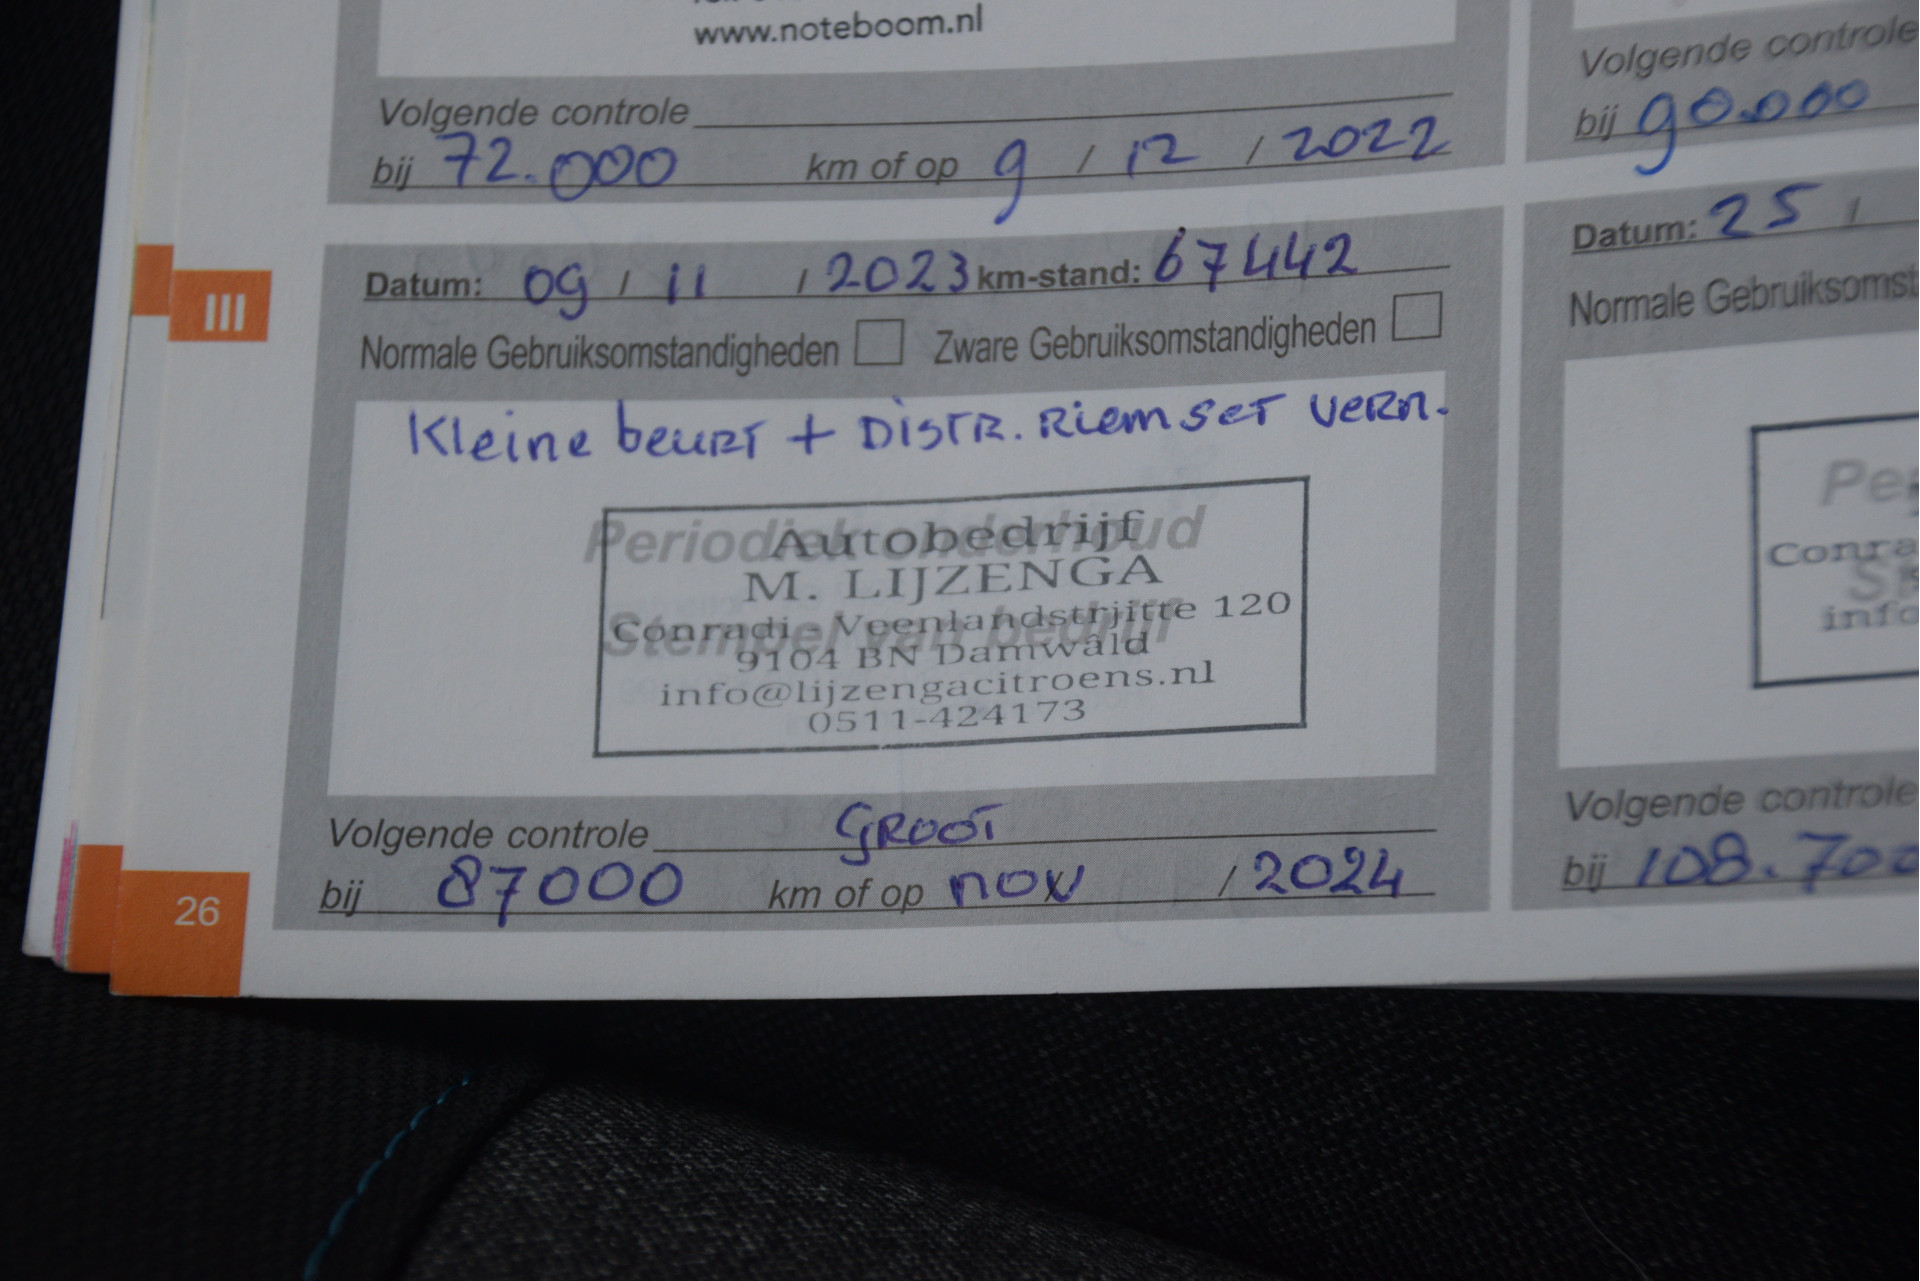 www.noteboom.nl
Volgende controle
bij 72.000 km of op 9 / 12 / 2022
III
Datum: 09 / 11 / 2023 km-stand: 67442
Normale Gebruiksomstandigheden Zware Gebruiksomstandigheden
Kleine beurt + Distr. Riemset vern.
Periodiek onderhoud
Stempel van bedrijf
Autobedrijf
M. LIJZENGA
Conradi - Veenlandstrjitte 120
9104 BN Damwâld
info@lijzengacitroens.nl
0511-424173
Volgende controle GROOT
bij 87000 km of op nov / 2024
26
Volgende controle
bij 90.000
Datum: 25 /
Normale Gebruiksomst
Pe
Conra
info
Volgende controle
bij 108.700